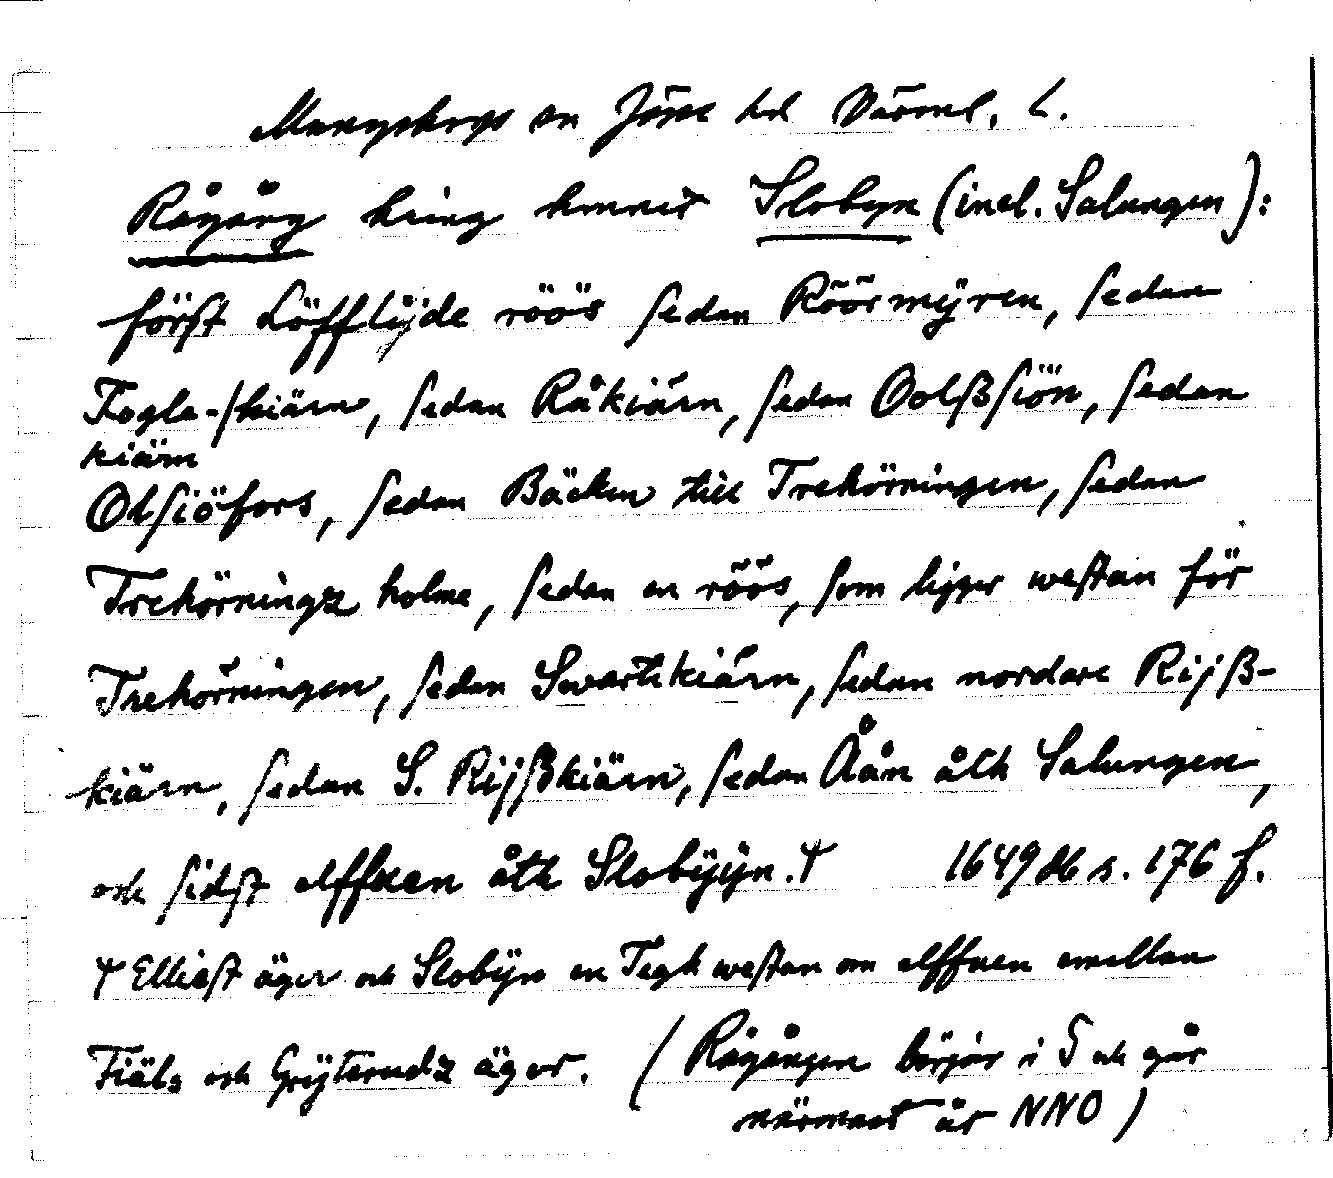 Mangskogs sn Jösse hd Värml. L.
Rågång kring hemmet Slobyn (incl. Salungen):
först Löfflijde röös sedan Röörmÿren, sedan
Fogle-skiärn, sedan Råkiärn, sedan Oolßsiön, sedan
kiärn
Olsiöfors, sedan Bäcken till Trehörningen, sedan
Trehörningz holme, sedan en röös, som ligger westan för
Trehörningen, sedan Swartkiärn, sedan nordare Rijß-
kiärn, sedan S. Rijßkiärn, sedan Åån åth Salungen,
och sidst elffuen åth Slobÿyn. 1649 s. 176 f.
Elliest äger och Slobÿn en Tegh westan om elffuen emellan
Fiäls och Grÿterudz äger. (Rågången börjar i S och går
närmast åt NNO)